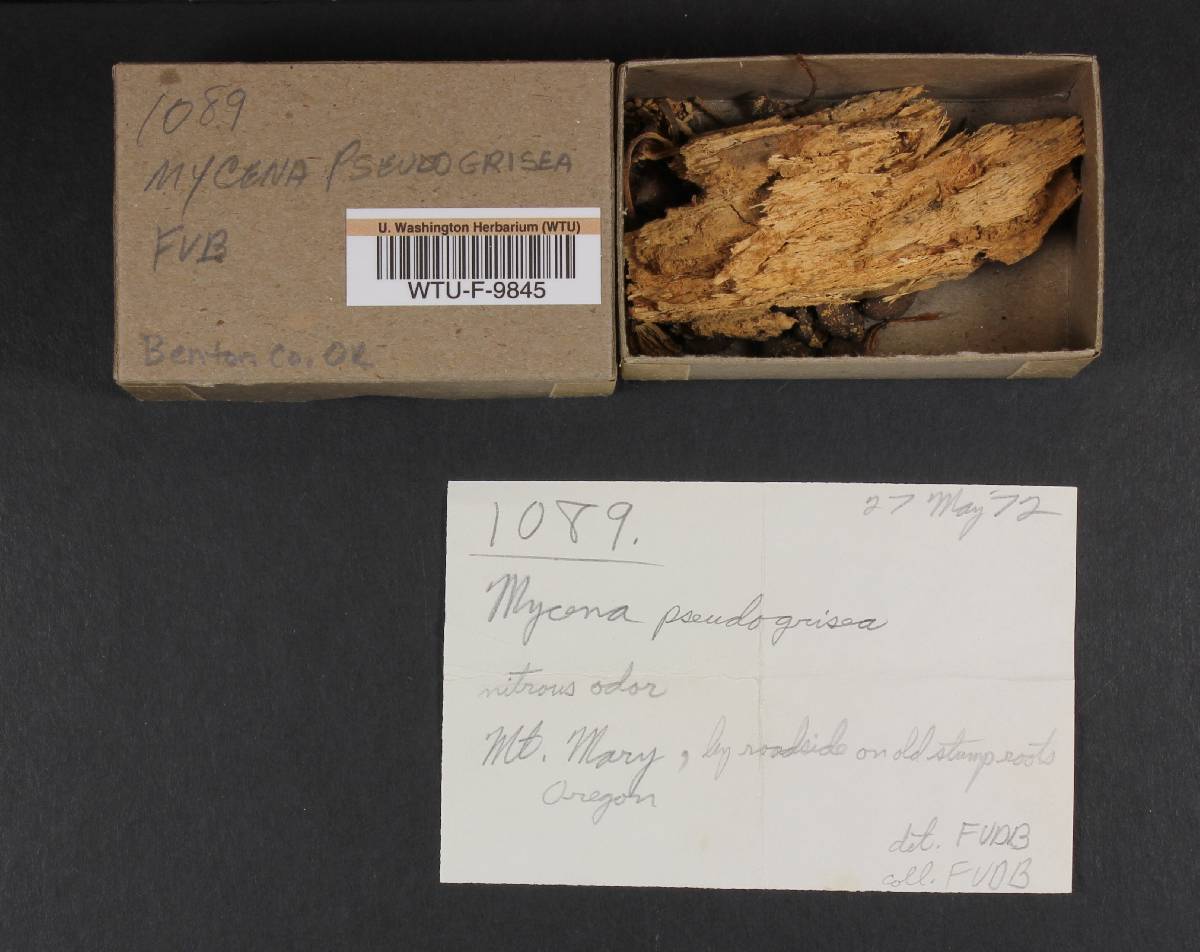 1089
MYCENA PSEUDOGRISEA
FVB
U. Washington Herbarium (WTU)
WTU-F-9845
Benton Co, OR
1089.
27 May '72
Mycena pseudogrisea
nitrous odor
Mt. Mary, by roadside on old stump roots
Oregon
det. FVDB
coll. FVDB